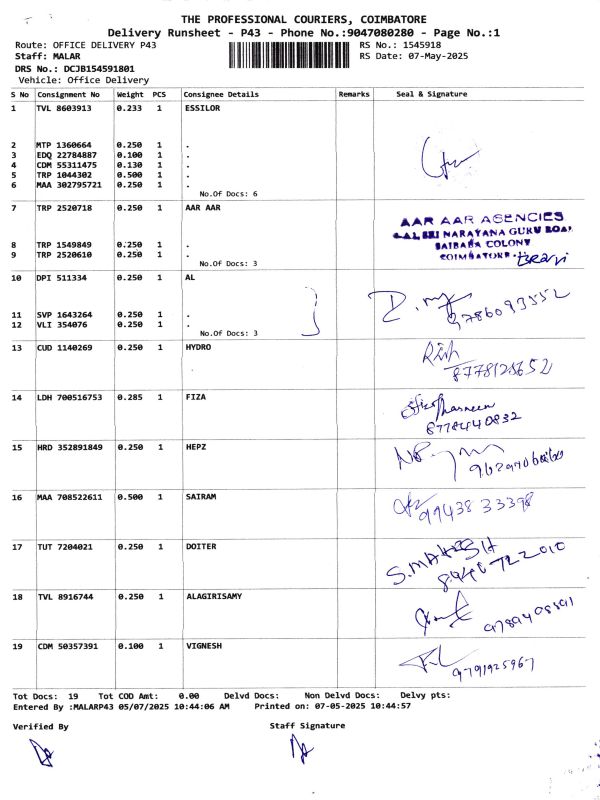 THE PROFESSIONAL COURIERS, COIMBATORE
Delivery Runsheet - P43 - Phone No.:9047080280 - Page No.:1
Route: OFFICE DELIVERY P43 RS No.: 1545918
Staff: MALAR RS Date: 07-May-2025
DRS No.: DCJB154591801
Vehicle: Office Delivery
S No Consignment No Weight PCS Consignee Details Remarks Seal & Signature
1 TVL 8603913 0.233 1 ESSILOR
2 MTP 1360664 0.250 1 .
3 EDQ 22784887 0.100 1 .
4 CDM 55311475 0.130 1 .
5 TRP 1044302 0.500 1 .
6 MAA 302795721 0.250 1 .
No.Of Docs: 6
7 TRP 2520718 0.250 1 AAR AAR
AAR AAR AGENCIES
SRI NARAYANA GURU ROAD
SAIBABA COLONY
8 TRP 1549849 0.250 1 .
9 TRP 2520610 0.250 1 .
COIMBATORE
No.Of Docs: 3
10 DPI 511334 0.250 1 AL
9786093552
11 SVP 1643264 0.250 1 .
12 VLI 354076 0.250 1 .
No.Of Docs: 3
13 CUD 1140269 0.250 1 HYDRO
8778128652
14 LDH 700516753 0.285 1 FIZA
8778440832
15 HRD 352891849 0.250 1 HEPZ
16 MAA 708522611 0.500 1 SAIRAM
9943833398
17 TUT 7204021 0.250 1 DOITER
S.MAHESH
18 TVL 8916744 0.250 1 ALAGIRISAMY
19 CDM 50357391 0.100 1 VIGNESH
9791925967
Tot Docs: 19 Tot COD Amt: 0.00 Delvd Docs: Non Delvd Docs: Delvy pts:
Entered By :MALARP43 05/07/2025 10:44:06 AM Printed on: 07-05-2025 10:44:57
Verified By Staff Signature